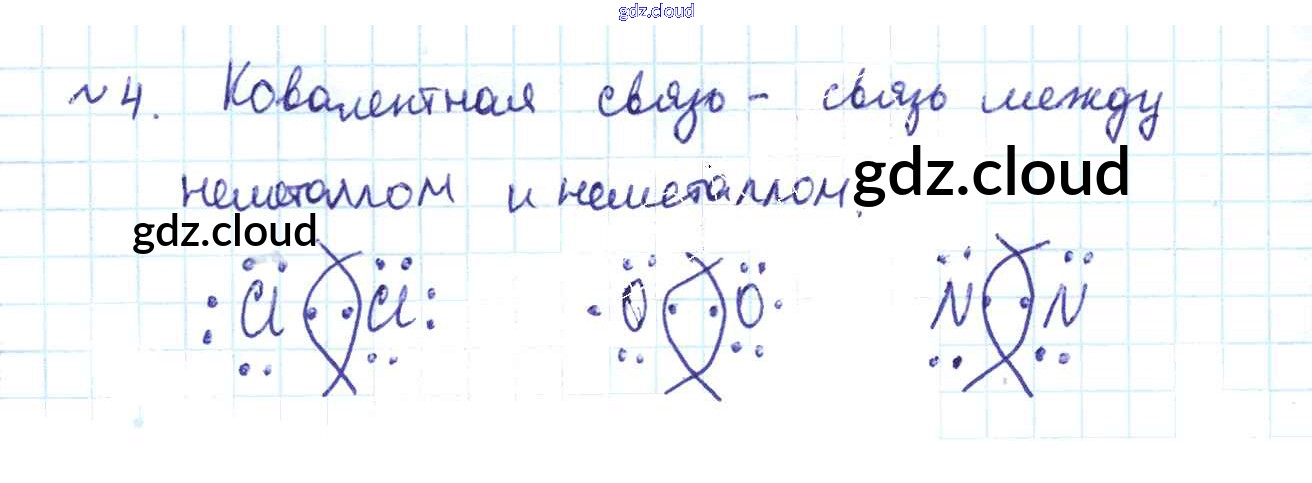 gdz.cloud
№4. Ковалентная связь - связь между
неметаллом и неметаллом.
gdz.cloud
gdz.cloud
Cl Cl O O N N